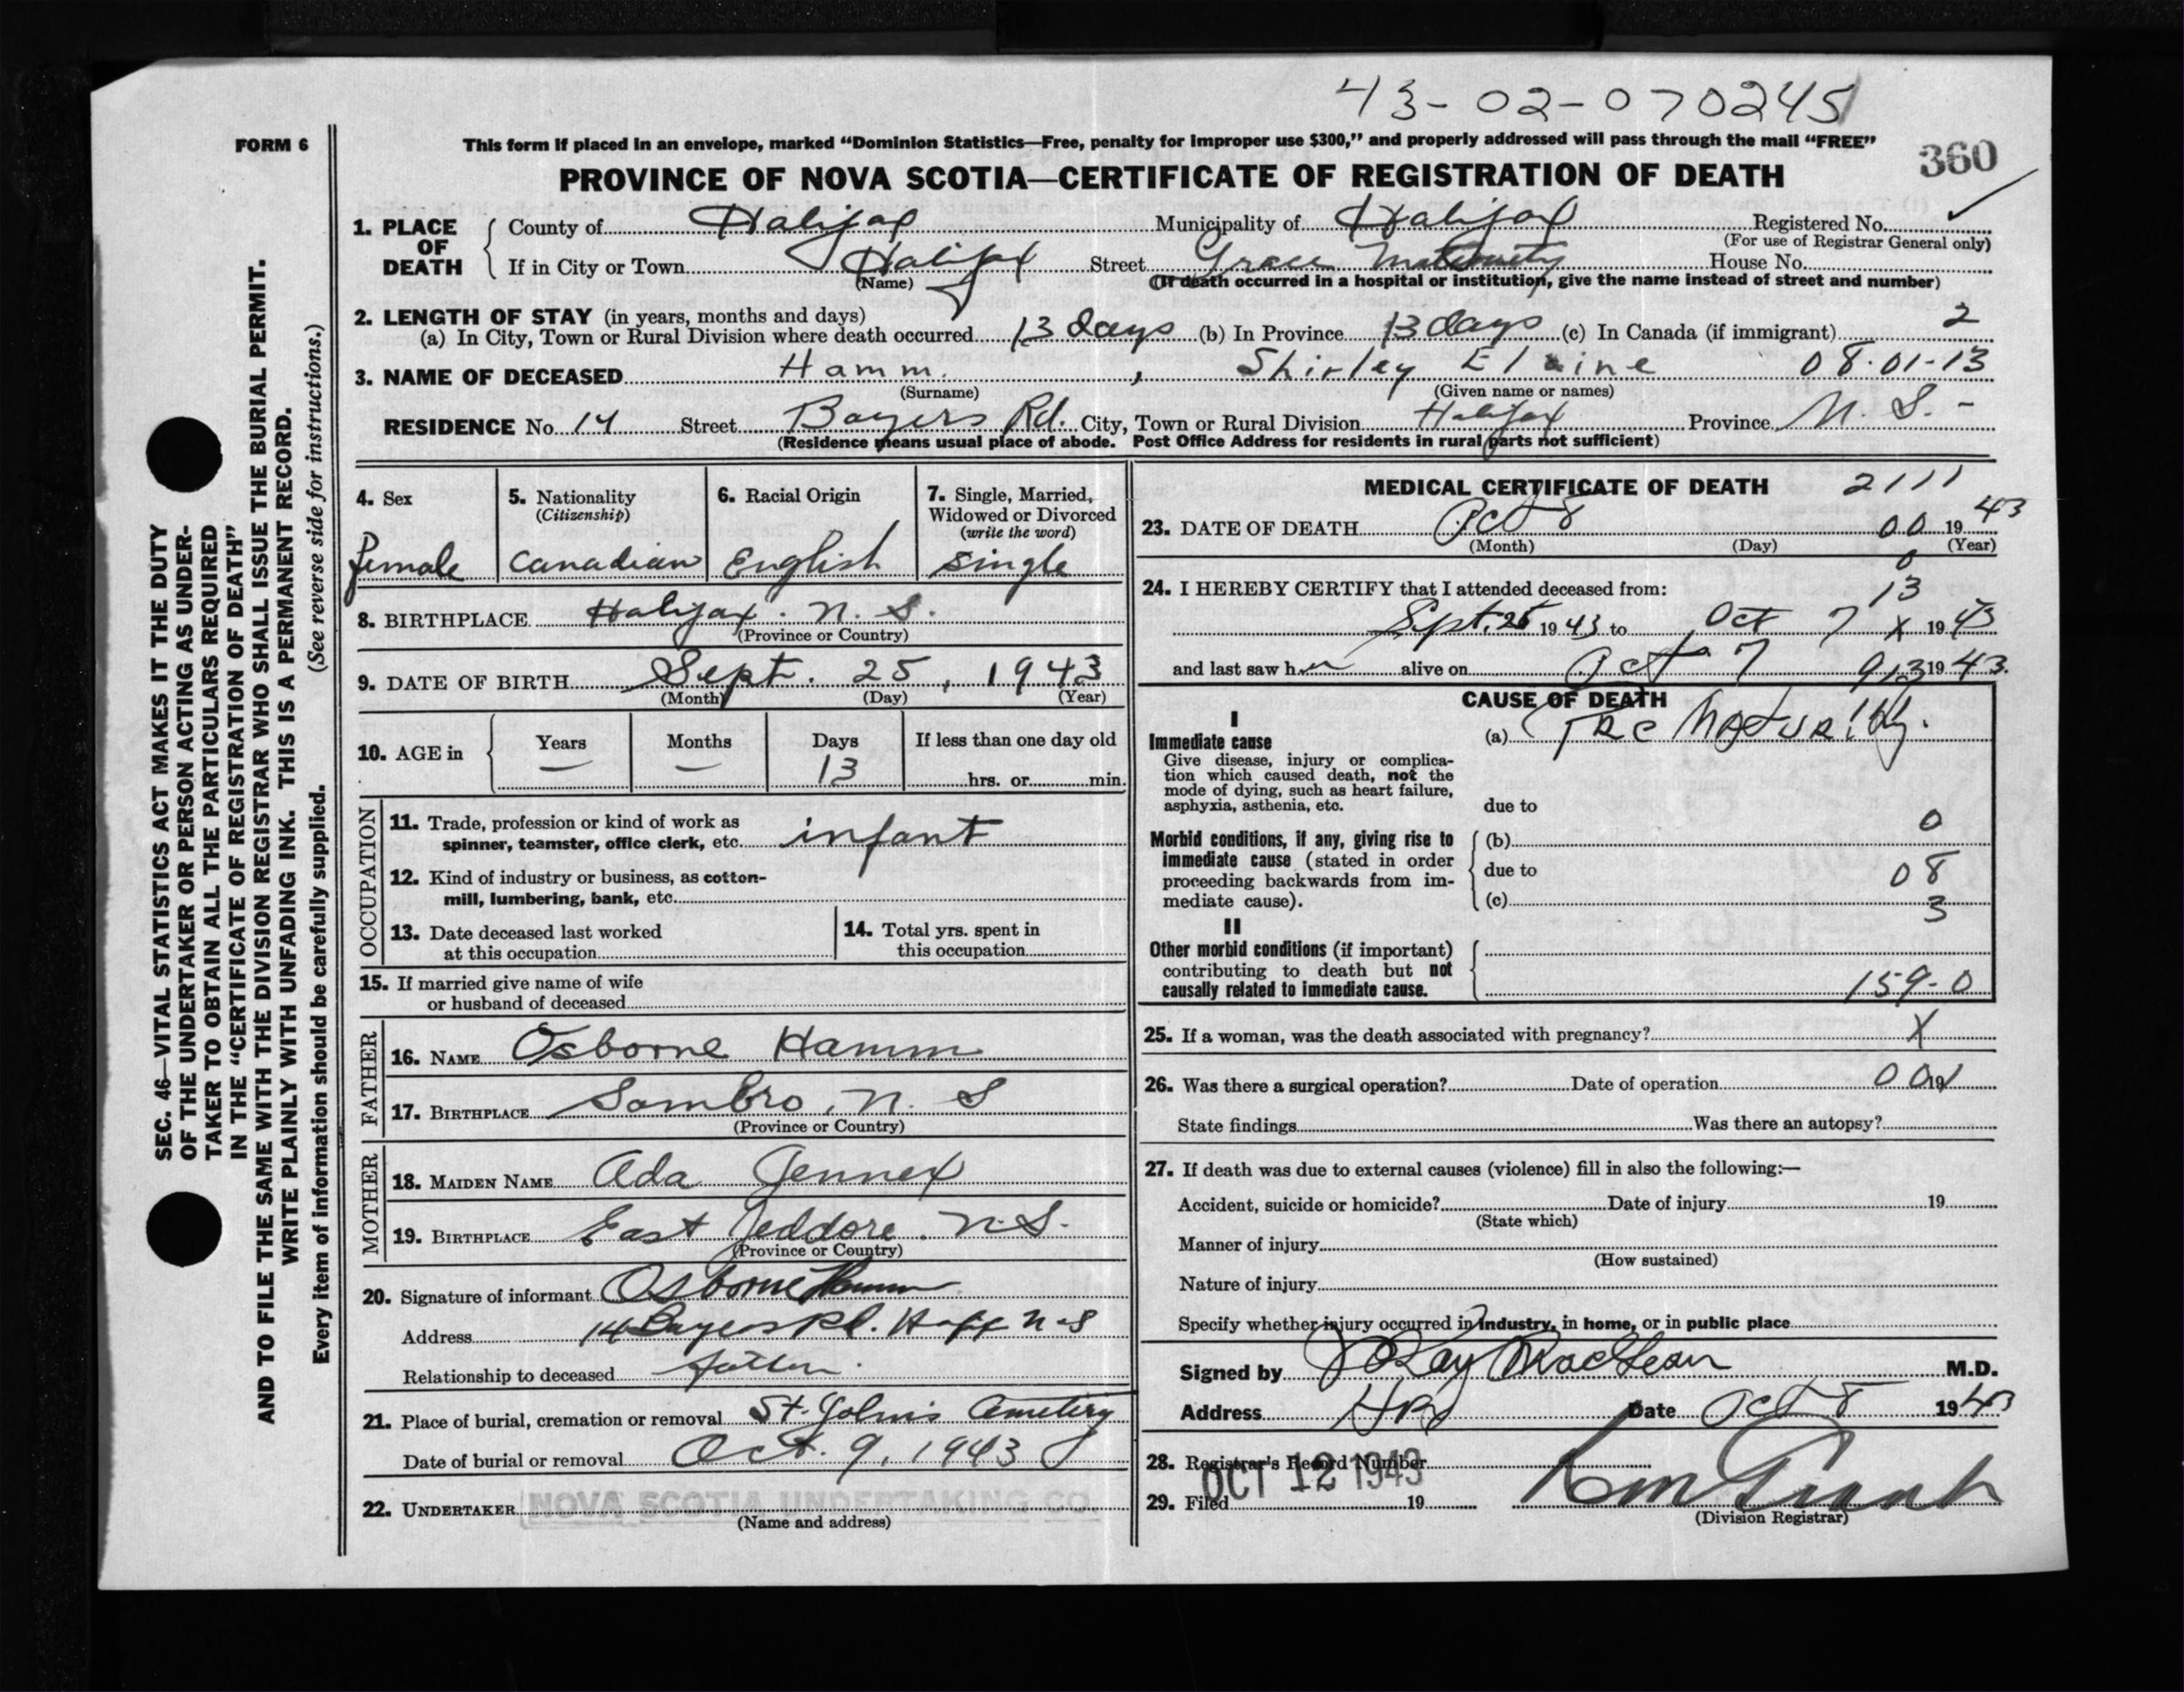 43-02-070245
FORM 6
This form if placed in an envelope, marked “Dominion Statistics—Free, penalty for improper use $300,” and properly addressed will pass through the mail “FREE”
360
PROVINCE OF NOVA SCOTIA—CERTIFICATE OF REGISTRATION OF DEATH
1. PLACE OF DEATH
County of Halifax Municipality of Halifax Registered No.
(For use of Registrar General only)
If in City or Town Halifax Street Grace Maternity House No.
(Name) (If death occurred in a hospital or institution, give the name instead of street and number)
2. LENGTH OF STAY (in years, months and days)
(a) In City, Town or Rural Division where death occurred 13 days (b) In Province 13 days (c) In Canada (if immigrant) 2
3. NAME OF DECEASED Hamm, Shirley Elaine 08-01-13
(Surname) (Given name or names)
RESIDENCE No. 14 Street Bayers Rd. City, Town or Rural Division Halifax Province N. S. -
(Residence means usual place of abode. Post Office Address for residents in rural parts not sufficient)
4. Sex
female
5. Nationality
(Citizenship)
Canadian
6. Racial Origin
English
7. Single, Married,
Widowed or Divorced
(write the word)
single
8. BIRTHPLACE Halifax. N. S.
(Province or Country)
9. DATE OF BIRTH Sept. 25, 1943
(Month) (Day) (Year)
10. AGE in
Years Months Days If less than one day old
— — 13 hrs. or min.
OCCUPATION
11. Trade, profession or kind of work as
spinner, teamster, office clerk, etc. infant
12. Kind of industry or business, as cotton-
mill, lumbering, bank, etc.
13. Date deceased last worked
at this occupation
14. Total yrs. spent in
this occupation
15. If married give name of wife
or husband of deceased
FATHER
16. NAME Osborne Hamm
17. BIRTHPLACE Sambro, N. S
(Province or Country)
MOTHER
18. MAIDEN NAME Ada Jennex
19. BIRTHPLACE East Jeddore. N.S.
(Province or Country)
20. Signature of informant Osborne Hamm
Address 14 Bayers Rd. Hafx N-S
Relationship to deceased father.
21. Place of burial, cremation or removal St. John's Cemetery
Date of burial or removal Oct. 9, 1943
22. UNDERTAKER NOVA SCOTIA UNDERTAKING CO.
(Name and address)
MEDICAL CERTIFICATE OF DEATH 2111
23. DATE OF DEATH Oct 8 00 1943
(Month) (Day) (Year)
0
24. I HEREBY CERTIFY that I attended deceased from: 13
Sept. 25 1943 to Oct 7 X 1943
and last saw her alive on Oct 7 913 1943.
CAUSE OF DEATH
I
Immediate cause
Give disease, injury or complica-
tion which caused death, not the
mode of dying, such as heart failure,
asphyxia, asthenia, etc.
(a) PreMaturity.
due to
0
Morbid conditions, if any, giving rise to
immediate cause (stated in order
proceeding backwards from im-
mediate cause).
(b)
due to 08
(c) 3
II
Other morbid conditions (if important)
contributing to death but not
causally related to immediate cause.
159-0
25. If a woman, was the death associated with pregnancy? X
26. Was there a surgical operation? Date of operation 00 19
State findings Was there an autopsy?
27. If death was due to external causes (violence) fill in also the following:—
Accident, suicide or homicide? Date of injury 19
(State which)
Manner of injury
(How sustained)
Nature of injury
Specify whether injury occurred in industry, in home, or in public place
Signed by Ray MacLean M.D.
Address Date Oct 8 1943
28. Registrar's Record Number
OCT 12 1943
29. Filed 19
(Division Registrar)
SEC. 46—VITAL STATISTICS ACT MAKES IT THE DUTY
OF THE UNDERTAKER OR PERSON ACTING AS UNDER-
TAKER TO OBTAIN ALL THE PARTICULARS REQUIRED
IN THE “CERTIFICATE OF REGISTRATION OF DEATH”
AND TO FILE THE SAME WITH THE DIVISION REGISTRAR WHO SHALL ISSUE THE BURIAL PERMIT.
WRITE PLAINLY WITH UNFADING INK. THIS IS A PERMANENT RECORD.
Every item of information should be carefully supplied. (See reverse side for instructions.)